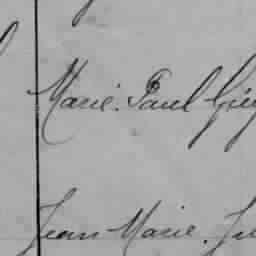 Marie. Paul
Jean Marie.